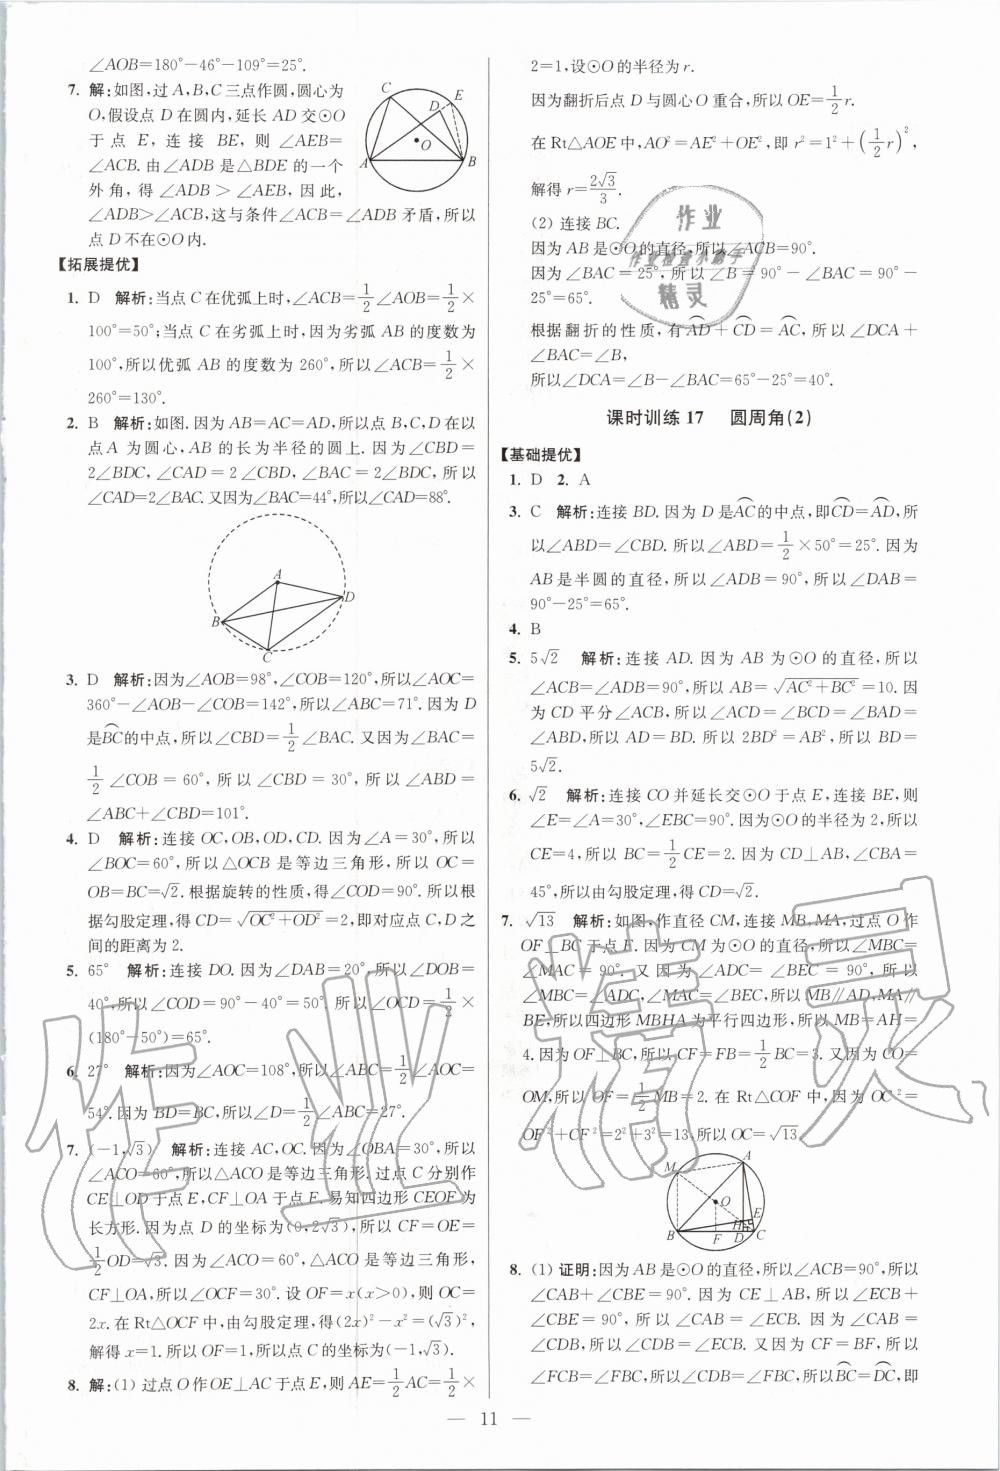 ∠AOB=180°-46°-109°=25°.
7. 解:如图,过A,B,C三点作圆,圆心为
O,假设点 D 在圆内,延长 AD 交⊙O
于点 E, 连接 BE, 则 ∠AEB=
∠ACB. 由∠ADB 是△BDE 的一个
外角, 得 ∠ADB > ∠AEB, 因此,
∠ADB>∠ACB,这与条件∠ACB=∠ADB 矛盾,所以
点 D 不在⊙O 内.
【拓展提优】
1. D 解析:当点 C 在优弧上时,∠ACB=1/2∠AOB=1/2×
100°=50°;当点 C 在劣弧上时,因为劣弧 AB 的度数为
100°,所以优弧 AB 的度数为 260°,所以∠ACB=1/2×
260°=130°.
2. B 解析:如图. 因为 AB=AC=AD,所以点 B,C,D 在以
点A 为圆心,AB 的长为半径的圆上. 因为∠CBD=
2∠BDC, ∠CAD = 2∠CBD, ∠BAC = 2∠BDC, 所以
∠CAD=2∠BAC. 又因为∠BAC=44°,所以∠CAD=88°.
3. D 解析:因为∠AOB=98°,∠COB=120°,所以∠AOC=
360°-∠AOB-∠COB=142°,所以∠ABC=71°. 因为 D
是B͡C的中点,所以∠CBD=1/2∠BAC. 又因为∠BAC=
1/2∠COB = 60°, 所以 ∠CBD = 30°, 所以 ∠ABD =
∠ABC+∠CBD=101°.
4. D 解析:连接 OC,OB,OD,CD. 因为∠A=30°,所以
∠BOC=60°,所以△OCB 是等边三角形,所以 OC=
OB=BC=√2. 根据旋转的性质,得∠COD=90°. 所以根
据勾股定理,得 CD=√(OC²+OD²)=2,即对应点 C,D 之
间的距离为 2.
5. 65° 解析:连接 DO. 因为∠DAB=20°,所以∠DOB=
40°,所以∠COD=90°-40°=50°, 所以∠OCD=1/2×
(180°-50°)=65°.
6. 27° 解析:因为∠AOC=108°,所以∠ABC=1/2∠AOC=
54°. 因为 BD=BC,所以∠D=1/2∠ABC=27°.
7. (-1,√3) 解析:连接 AC,OC. 因为∠OBA=30°,所以
∠ACO=60°,所以△ACO 是等边三角形. 过点 C 分别作
CE⊥OD 于点 E,CF⊥OA 于点 F, 易知四边形 CEOF 为
长方形. 因为点 D 的坐标为(0,2√3),所以 CF=OE=
1/2OD=√3. 因为∠ACO=60°,△ACO 是等边三角形,
CF⊥OA,所以∠OCF=30°. 设 OF=x(x>0),则 OC=
2x. 在 Rt△OCF 中,由勾股定理,得(2x)²-x²=(√3)²,
解得 x=1. 所以 OF=1,所以点 C 的坐标为(-1,√3).
8. 解:(1) 过点 O 作 OE⊥AC 于点 E,则 AE=1/2AC=1/2×
2=1,设⊙O 的半径为 r.
因为翻折后点 D 与圆心 O 重合,所以 OE=1/2r.
在 Rt△AOE 中,AO²=AE²+OE²,即 r²=1²+(1/2r)²,
解得 r=2√3/3.
(2) 连接 BC.
因为 AB 是⊙O 的直径,所以∠ACB=90°.
因为 ∠BAC = 25°, 所以 ∠B = 90° - ∠BAC = 90° -
25°=65°.
根据翻折的性质,有A͡D+C͡D=A͡C,所以∠DCA+
∠BAC=∠B,
所以∠DCA=∠B-∠BAC=65°-25°=40°.
课时训练 17 圆周角(2)
【基础提优】
1. D 2. A
3. C 解析:连接 BD. 因为 D 是A͡C的中点,即C͡D=A͡D,所
以∠ABD=∠CBD. 所以∠ABD=1/2×50°=25°. 因为
AB 是半圆的直径,所以∠ADB=90°,所以∠DAB=
90°-25°=65°.
4. B
5. 5√2 解析:连接 AD. 因为 AB 为⊙O 的直径,所以
∠ACB=∠ADB=90°,所以 AB=√(AC²+BC²)=10. 因
为 CD 平分∠ACB,所以∠ACD=∠BCD=∠BAD=
∠ABD,所以 AD=BD. 所以 2BD²=AB²,所以 BD=
5√2.
6. √2 解析:连接 CO 并延长交⊙O 于点 E,连接 BE,则
∠E=∠A=30°,∠EBC=90°. 因为⊙O 的半径为 2,所以
CE=4,所以 BC=1/2CE=2. 因为 CD⊥AB,∠CBA=
45°,所以由勾股定理,得 CD=√2.
7. √13 解析:如图,作直径 CM,连接 MB,MA,过点 O 作
OF⊥BC 于点 F. 因为 CM 为⊙O 的直径,所以∠MBC=
∠MAC = 90°. 又因为 ∠ADC = ∠BEC = 90°, 所以
∠MBC=∠ADC,∠MAC=∠BEC,所以 MB∥AD,MA∥
BE,所以四边形 MBHA 为平行四边形,所以 MB=AH=
4. 因为 OF⊥BC,所以 CF=FB=1/2BC=3. 又因为 CO=
OM,所以 OF=1/2MB=2. 在 Rt△COF 中,因为 OC²=
OF²+CF²=2²+3²=13,所以 OC=√13.
8. (1) 证明:因为 AB 是⊙O 的直径,所以∠ACB=90°,所以
∠CAB+∠CBE=90°. 因为 CE⊥AB, 所以∠ECB+
∠CBE = 90°, 所以 ∠CAB = ∠ECB. 因为 ∠CAB =
∠CDB,所以∠CDB=∠ECB. 又因为 CF=BF,所以
∠FCB=∠FBC,所以∠CDB=∠FBC,所以B͡C=D͡C,即
— 11 —
作业精灵
作业
精灵